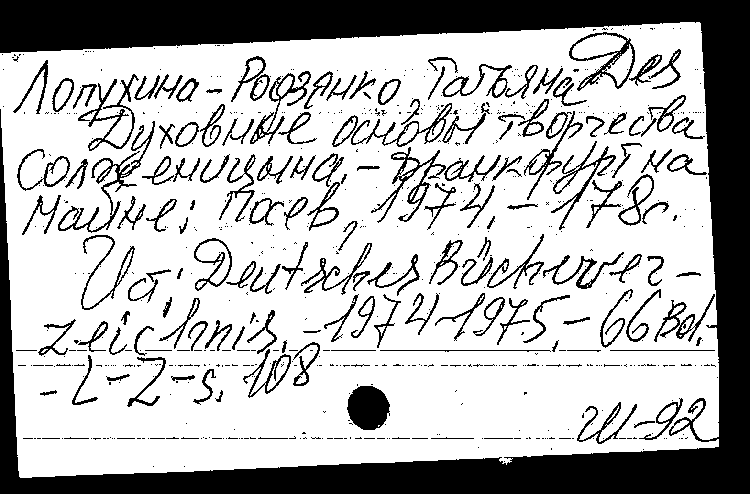 Лопухина-Родзянко, Татьяна Des
Духовные основы творчества
Солженицына.- Франкфурт на
Майне: Посев, 1974.- 178с.
Ист: Deutsches Bücherver-
zeichnis.-1974-1975.-66 Bd.-
-L-Z-s. 108
Ш-92